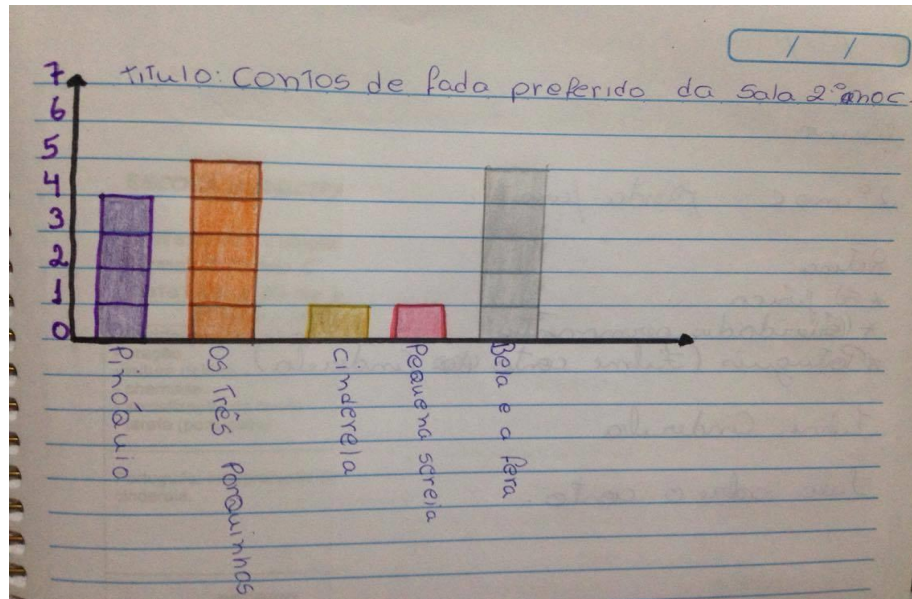 / /
TíTulo: Contos de fada preferido da Sala 2º anoc.
7
6
5
4
3
2
1
0
Pinóquio
Os Três Porquinhos
Cinderela
Pequena sereia
Bela e a fera